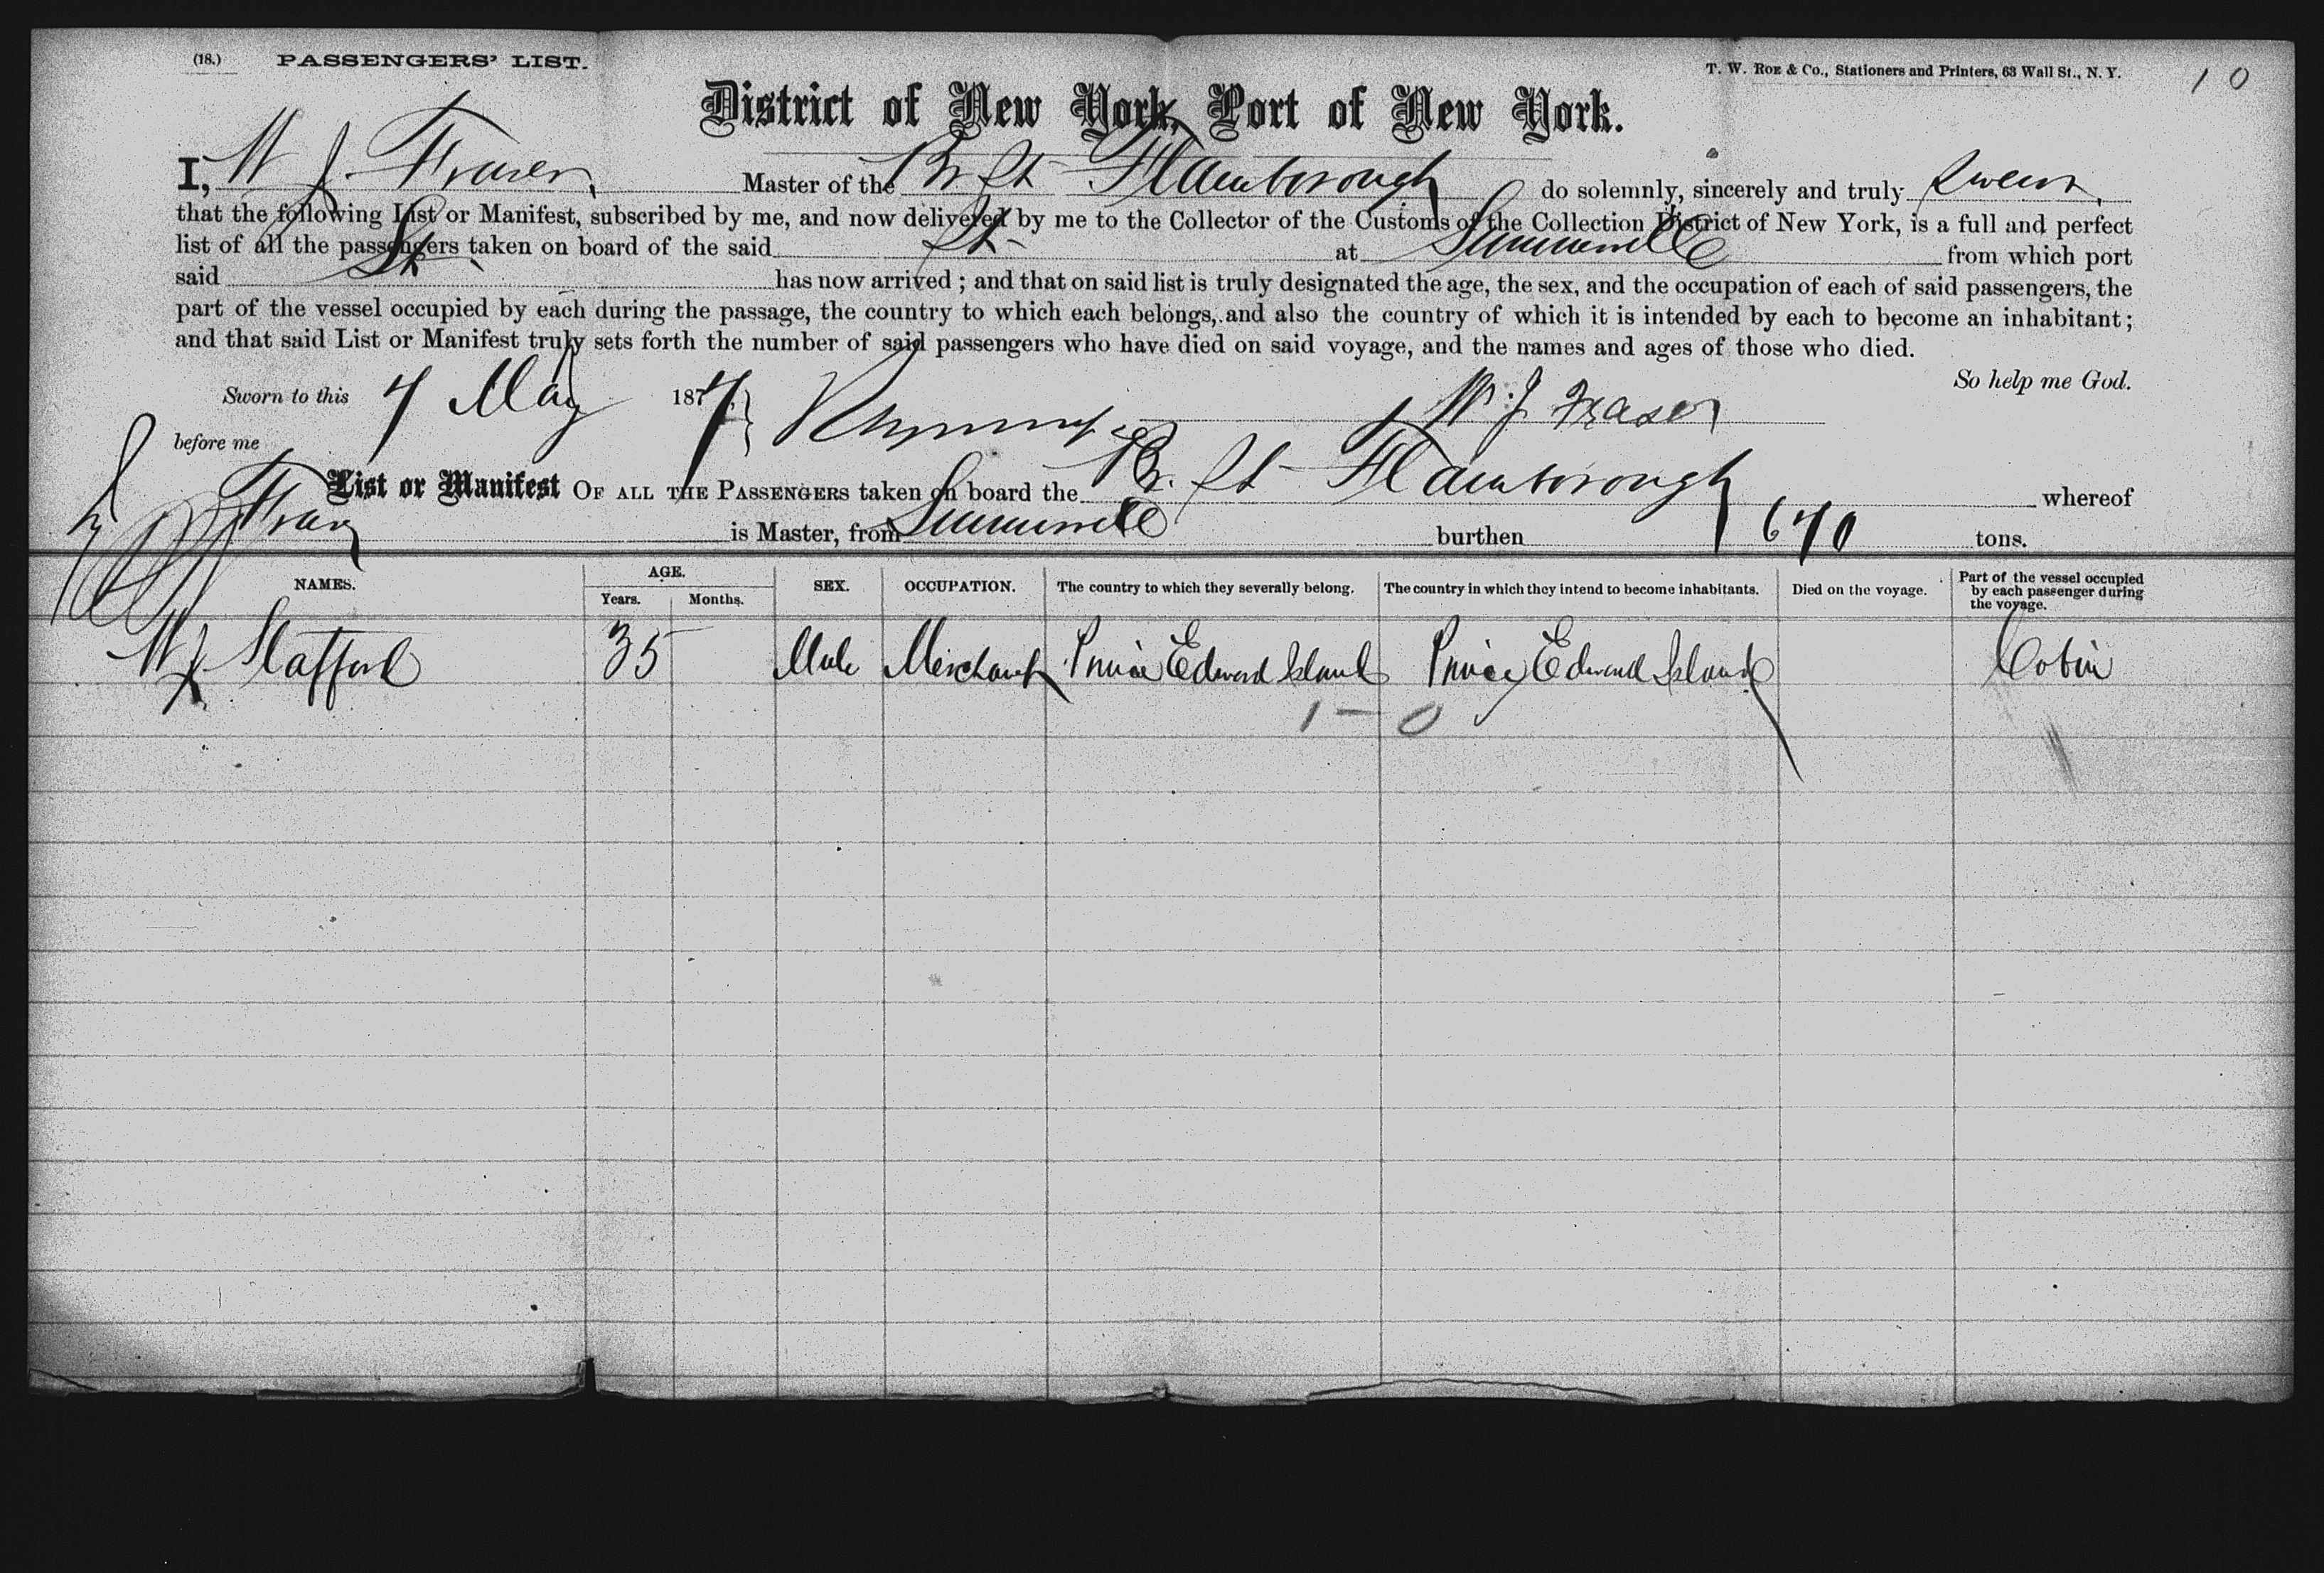 (18.) PASSENGERS' LIST. T. W. ROE & Co., Stationers and Printers, 63 Wall St., N. Y. 10
District of New York, Port of New York.
I, W J. Fraser, Master of the Br St Flamborough do solemnly, sincerely and truly swear,
that the following List or Manifest, subscribed by me, and now delivered by me to the Collector of the Customs of the Collection District of New York, is a full and perfect
list of all the passengers taken on board of the said St at from which port
said St has now arrived ; and that on said list is truly designated the age, the sex, and the occupation of each of said passengers, the
part of the vessel occupied by each during the passage, the country to which each belongs, and also the country of which it is intended by each to become an inhabitant ;
and that said List or Manifest truly sets forth the number of said passengers who have died on said voyage, and the names and ages of those who died.
So help me God.
Sworn to this 7 May 1877,
W. J Fraser
before me
List or Manifest OF ALL THE PASSENGERS taken on board the Br. St Flamborough whereof
is Master, from burthen tons.
NAMES. AGE. Years. Months. SEX. OCCUPATION. The country to which they severally belong. The country in which they intend to become inhabitants. Died on the voyage. Part of the vessel occupied by each passenger during the voyage.
Stafford 35 Male Merchant Prince Edward Island Prince Edward Island Cabin
1 - 0